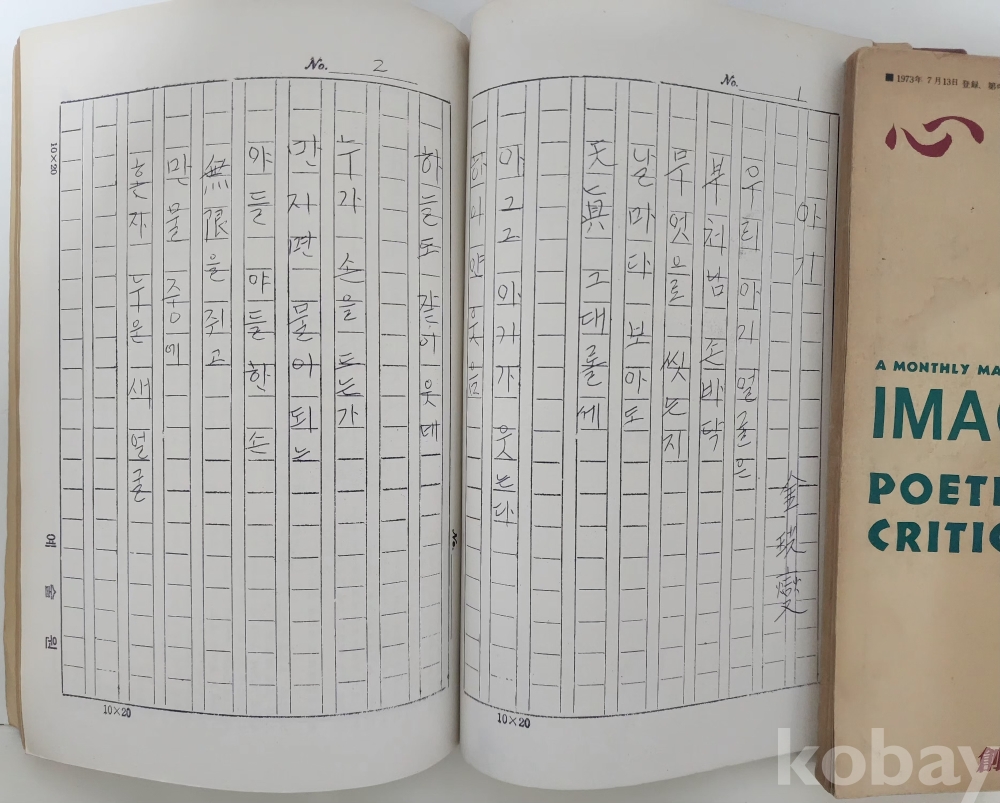 No. 1
아기
金
우리 아기 얼굴은
부처님 손바닥
무엇으로 씻는지
날마다 보아도
天眞 그대롤세
아그그 아기가 웃는다
하아얀 웃음
10×20
No. 2
하늘도 같이 웃네
누가 손을 드는가
만지면 물이 되는
야들 야들한 손
無限을 쥐고
만물 중에
혼자 누운 새 얼굴
10×20
10×20
예술원
No.
■1973年 7月13日 登録.
心
A MONTHLY MA
IMA
POET
CRITIC
創
kobay